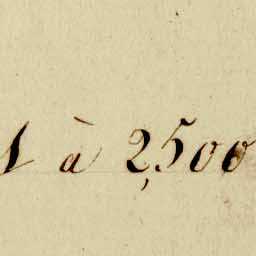 1 à 2,500